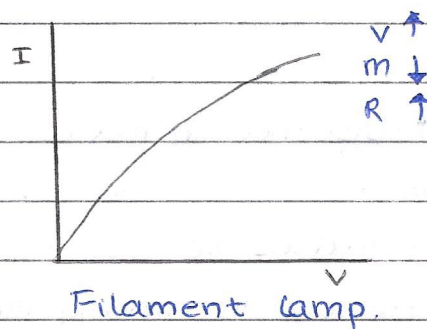 I
V ↑
m ↓
R ↑
V
Filament lamp.